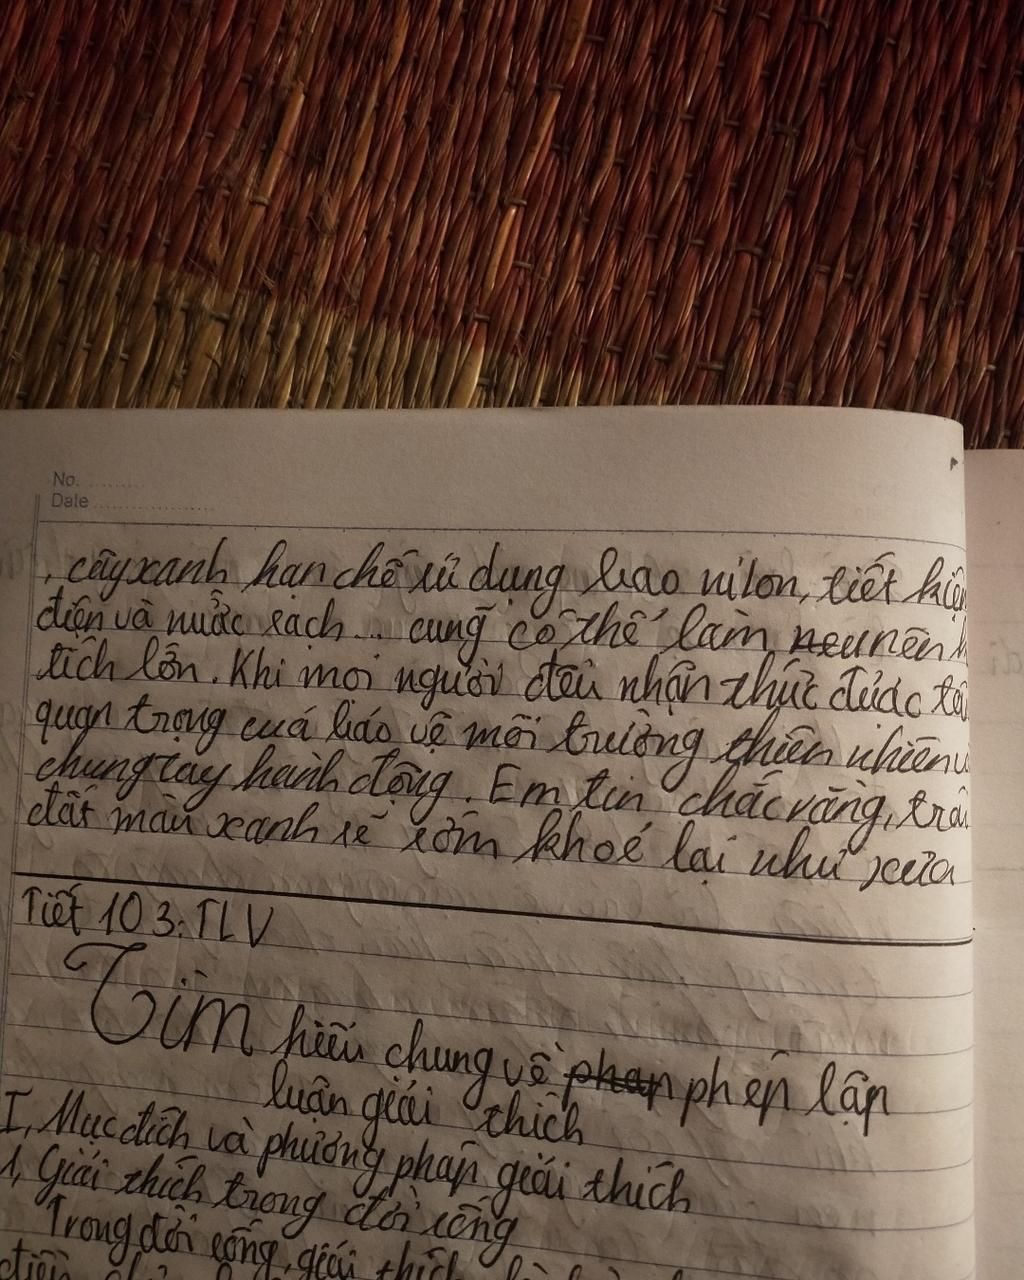 No. ..........
Date ....................
, cây xanh hạn chế sử dụng bao nilon, tiết kiện
điện và nước sạch... cũng có thể làm nên
tích lớn. Khi mọi người đều nhận thức được
quan trọng của bảo vệ môi trường thiên nhiên
chung tay hành động. Em tin chắc rằng, trái
đất màu xanh sẽ sớm khoẻ lại như xưa
Tiết 103: TLV
Tìm hiểu chung về phép lập
luận giải thích
I, Mục đích và phương pháp giải thích
1, Giải thích trong đời sống
Trong đời sống, giải thích